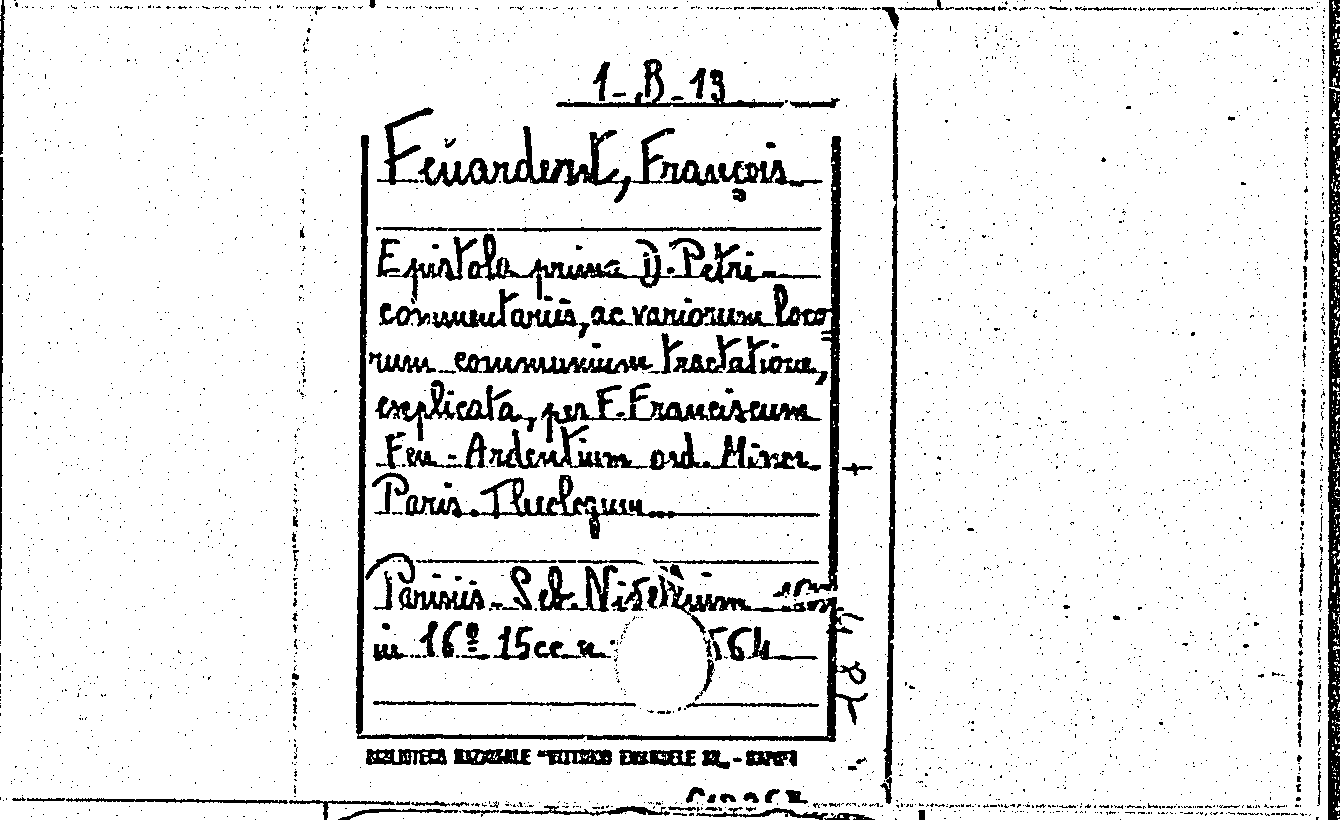 1-B-13
Feuardent, François
Epistola prima D. Petri
commentariis, ac variorum loco
rum communium tractatione,
explicata, per F. Franciscum
Feu-Ardentium ord. Minor.
Paris. Theologum...
Parisiis. Seb. Nivellium
in 16º 15 cc n 564
BIBLIOTECA NAZIONALE "VITTORIO EMANUELE III„ - NAPOLI